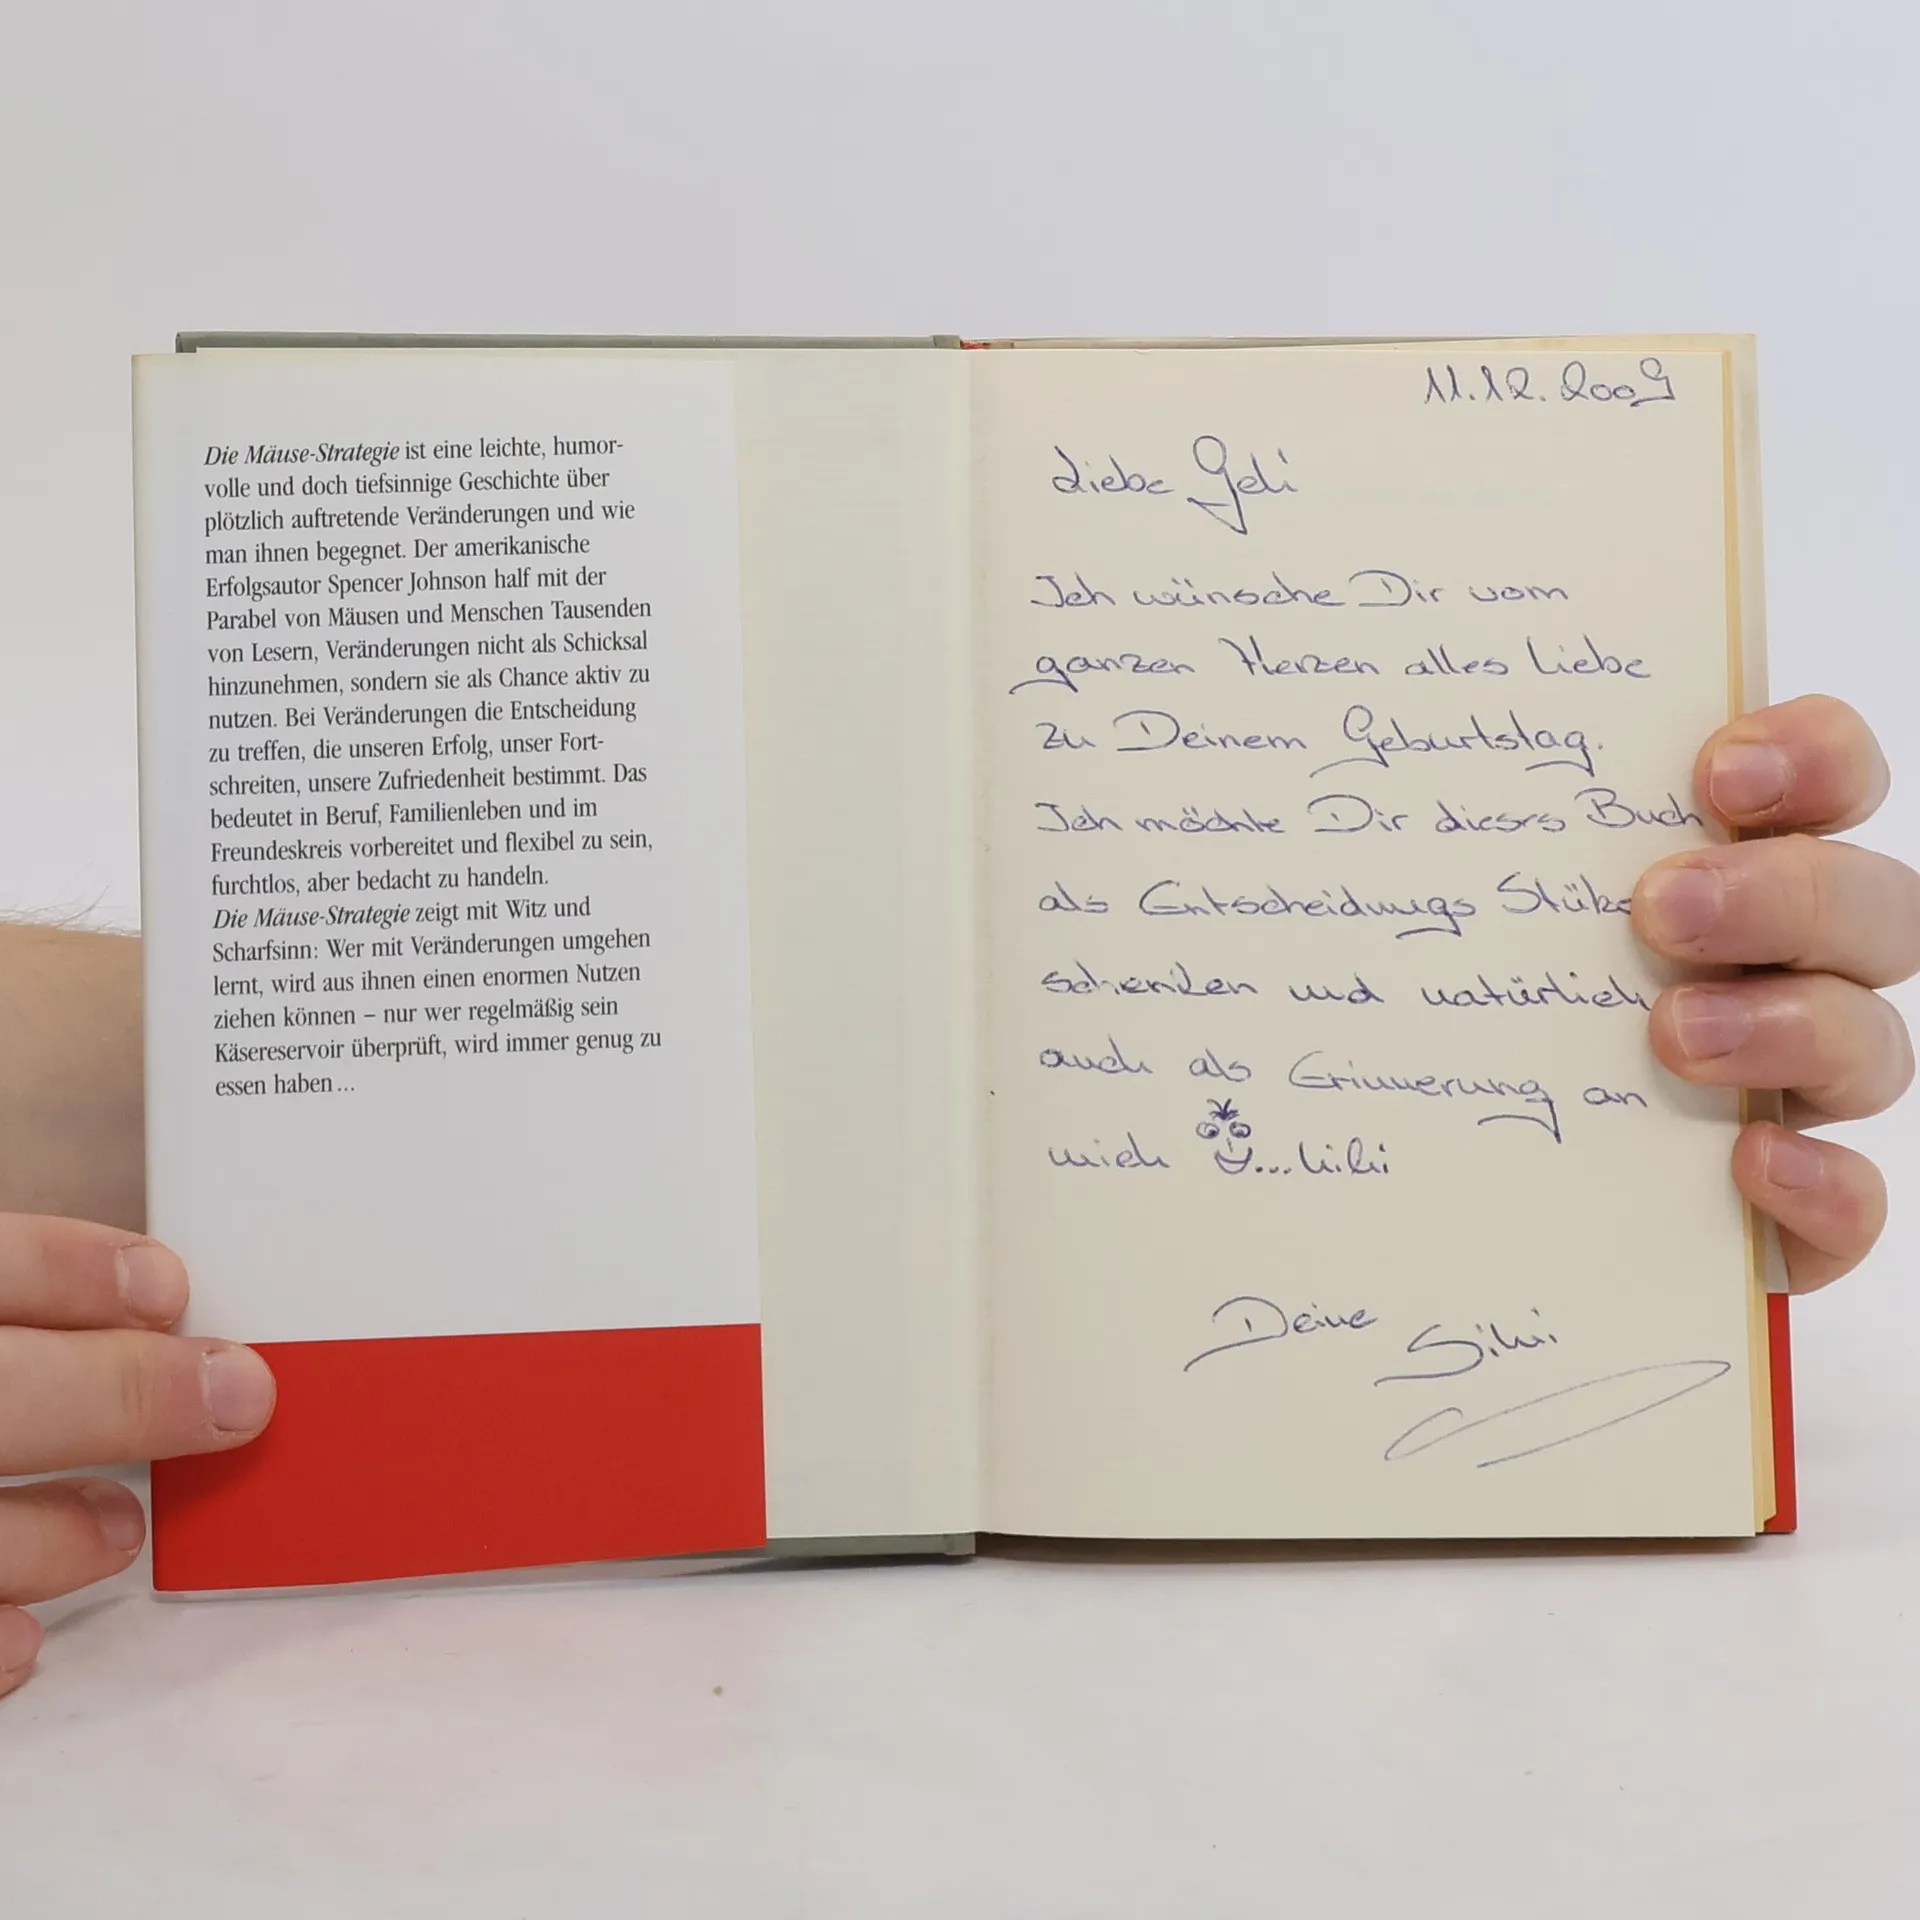 Die Mäuse-Strategie ist eine leichte, humor-
volle und doch tiefsinnige Geschichte über
plötzlich auftretende Veränderungen und wie
man ihnen begegnet. Der amerikanische
Erfolgsautor Spencer Johnson half mit der
Parabel von Mäusen und Menschen Tausenden
von Lesern, Veränderungen nicht als Schicksal
hinzunehmen, sondern sie als Chance aktiv zu
nutzen. Bei Veränderungen die Entscheidung
zu treffen, die unseren Erfolg, unser Fort-
schreiten, unsere Zufriedenheit bestimmt. Das
bedeutet in Beruf, Familienleben und im
Freundeskreis vorbereitet und flexibel zu sein,
furchtlos, aber bedacht zu handeln.
Die Mäuse-Strategie zeigt mit Witz und
Scharfsinn: Wer mit Veränderungen umgehen
lernt, wird aus ihnen einen enormen Nutzen
ziehen können – nur wer regelmäßig sein
Käsereservoir überprüft, wird immer genug zu
essen haben ...
11.12.2009
Liebe Geli
Ich wünsche Dir vom
ganzen Herzen alles Liebe
zu Deinem Geburtstag.
Ich möchte Dir dieses Buch
als Entscheidungs
schenken und natürlich
auch als Erinnerung an
mich ...hihi
Deine